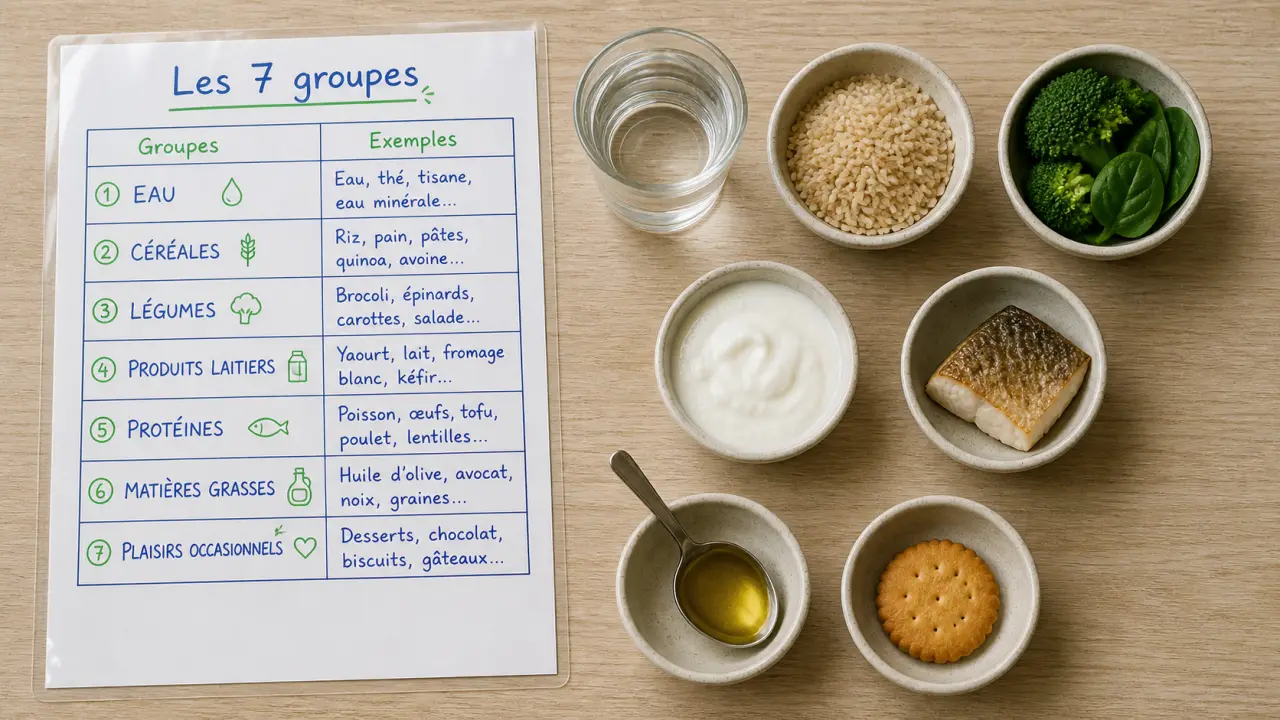 Les 7 groupes
Groupes
Exemples
1 EAU
Eau, thé, tisane,
eau minérale...
2 CÉRÉALES
Riz, pain, pâtes,
quinoa, avoine...
3 LÉGUMES
Brocoli, épinards,
carottes, salade...
4 PRODUITS LAITIERS
Yaourt, lait, fromage
blanc, kéfir...
5 PROTÉINES
Poisson, œufs, tofu,
poulet, lentilles...
6 MATIÈRES GRASSES
Huile d'olive, avocat,
noix, graines...
7 PLAISIRS OCCASIONNELS
Desserts, chocolat,
biscuits, gâteaux...